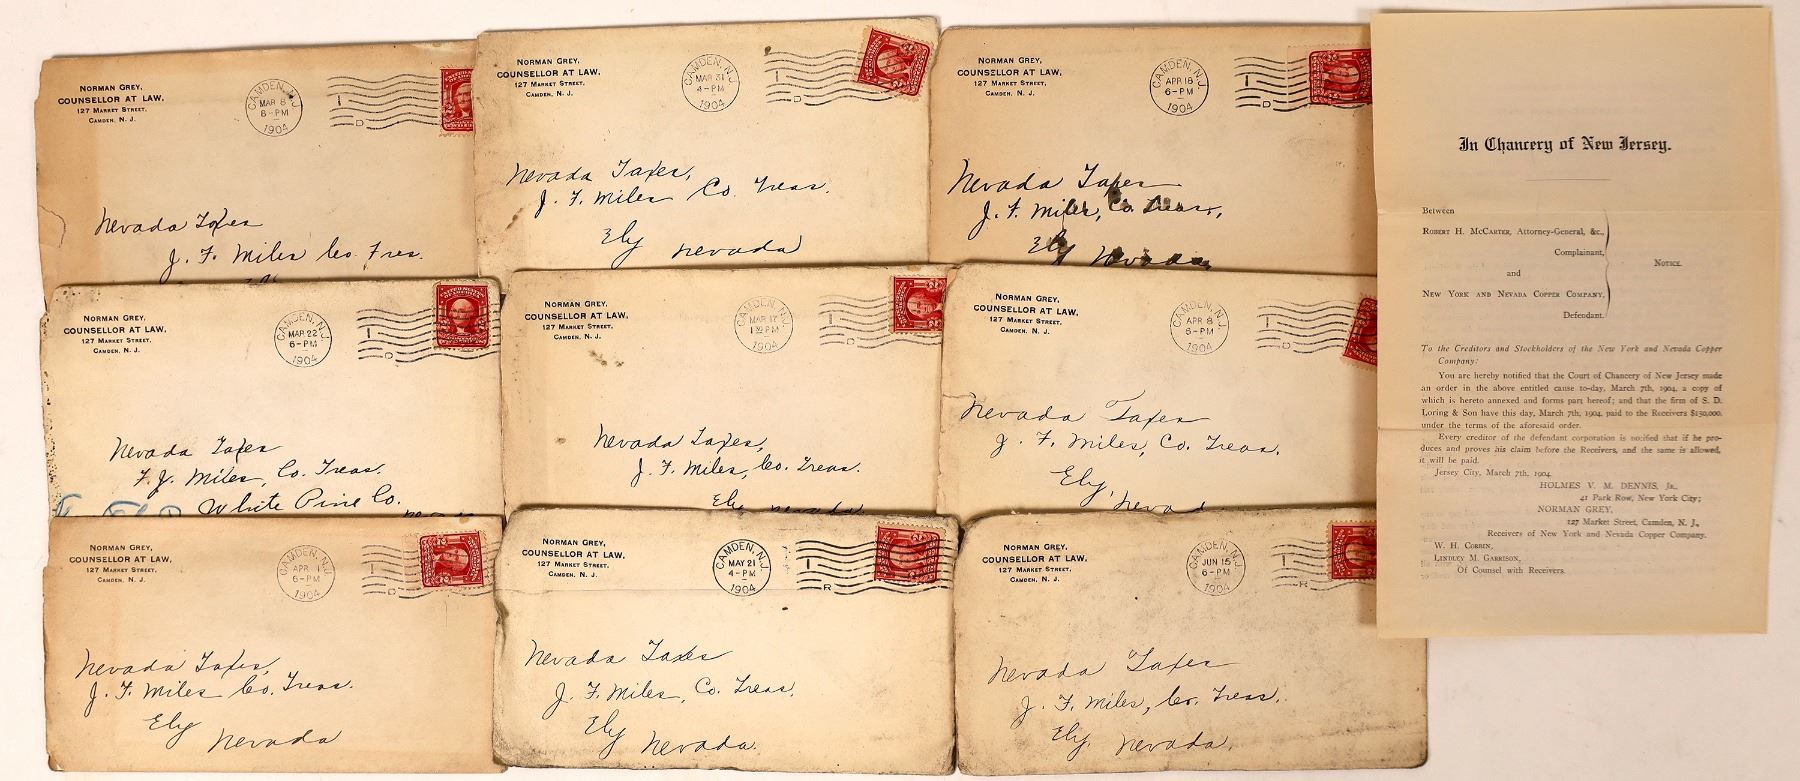 NORMAN GREY,
COUNSELLOR AT LAW,
127 MARKET STREET,
CAMDEN, N. J.
CAMDEN, N.J.
MAR 8
8-PM
1904
Nevada Taxes
J. F. Miles Co. Tres.
NORMAN GREY,
COUNSELLOR AT LAW,
127 MARKET STREET,
CAMDEN, N. J.
CAMDEN, N.J.
MAR 31
4-PM
1904
D
Nevada Taxes,
J. F. Miles Co Treas.
Ely Nevada
NORMAN GREY,
COUNSELLOR AT LAW,
127 MARKET STREET,
CAMDEN, N. J.
CAMDEN, N.J.
APR 18
6-PM
1904
D
Nevada Taxes
J. F. Miles, Co. Treas.,
Ely Nevada,
NORMAN GREY,
COUNSELLOR AT LAW,
127 MARKET STREET,
CAMDEN, N. J.
CAMDEN, N.J.
MAR 22
6-PM
1904
D
Nevada Taxes
F. J. Miles, Co. Treas.
White Pine Co.
NORMAN GREY,
COUNSELLOR AT LAW,
127 MARKET STREET,
CAMDEN, N. J.
CAMDEN, N.J.
MAR 17
1 30 PM
1904
D
Nevada Taxes,
J. F. Miles, Co. Treas.
Ely Nevada
NORMAN GREY,
COUNSELLOR AT LAW,
127 MARKET STREET,
CAMDEN, N. J.
CAMDEN, N.J.
APR 8
6-PM
1904
D
Nevada Taxes
J. F. Miles, Co. Treas.
Ely,
NORMAN GREY,
COUNSELLOR AT LAW,
127 MARKET STREET,
CAMDEN, N. J.
CAMDEN, N.J.
APR 1
6-PM
1904
D
Nevada Taxes,
J. F. Miles Co. Treas.
Ely
Nevada
NORMAN GREY,
COUNSELLOR AT LAW,
127 MARKET STREET,
CAMDEN, N. J.
CAMDEN, N.J.
MAY 21
4-PM
1904
R
Nevada Taxes
J. F. Miles, Co. Treas.
Ely Nevada.
NORMAN GREY,
COUNSELLOR AT LAW,
127 MARKET STREET,
CAMDEN, N. J.
CAMDEN, N.J.
JUN 15
6-PM
1904
R
Nevada Taxes
J. F. Miles, Co. Treas.
Ely, Nevada,
In Chancery of New Jersey.
Between
ROBERT H. MCCARTER, Attorney-General, &c.,
Complainant,
and
NEW YORK AND NEVADA COPPER COMPANY,
Defendant.
NOTICE.
To the Creditors and Stockholders of the New York and Nevada Copper
Company:
You are hereby notified that the Court of Chancery of New Jersey made
an order in the above entitled cause to-day, March 7th, 1904, a copy of
which is hereto annexed and forms part hereof; and that the firm of S. D.
Loring & Son have this day, March 7th, 1904, paid to the Receivers $150,000.
under the terms of the aforesaid order.
Every creditor of the defendant corporation is notified that if he pro-
duces and proves his claim before the Receivers, and the same is allowed,
it will be paid.
Jersey City, March 7th, 1904.
HOLMES V. M. DENNIS, JR.,
41 Park Row, New York City;
NORMAN GREY,
127 Market Street, Camden, N. J.,
Receivers of New York and Nevada Copper Company.
W. H. CORBIN,
LINDLEY M. GARRISON,
Of Counsel with Receivers.